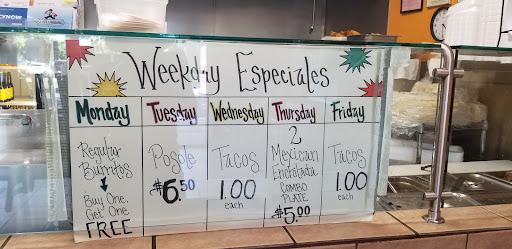 Weekday Especiales
Monday Tuesday Wednesday Thursday Friday
Regular
Burritos
Buy One,
Get One
FREE
Posole
$6.50
Tacos
1.00
each
2
Mexican
Enchilada
COMBO
PLATE
$5.00
Tacos
1.00
each